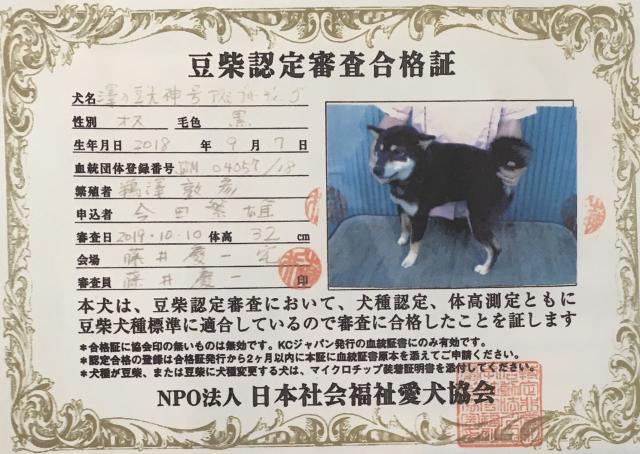 豆柴認定審査合格証
犬名 澤の豆光神号
性別 オス 毛色 黒
生年月日 2018 年 9 月 7 日
血統団体登録番号 04057/18
繁殖者 鵜澤敦彦
申込者 今田繁雄
審査日 2019・10・10 体高 32 cm
会場 藤井慶一宅
審査員 藤井慶一 印
本犬は、豆柴認定審査において、犬種認定、体高測定ともに
豆柴犬種標準に適合しているので審査に合格したことを証します
*合格証に協会印の無いものは無効です。KCジャパン発行の血統証書にのみ有効です。
*認定合格の登録は合格証発行から2ヶ月以内に本証に血統証書原本を添えてご申請ください。
*犬種が豆柴、または豆柴に犬種変更する犬は、マイクロチップ装着証明書を添付してください。
NPO法人 日本社会福祉愛犬協会